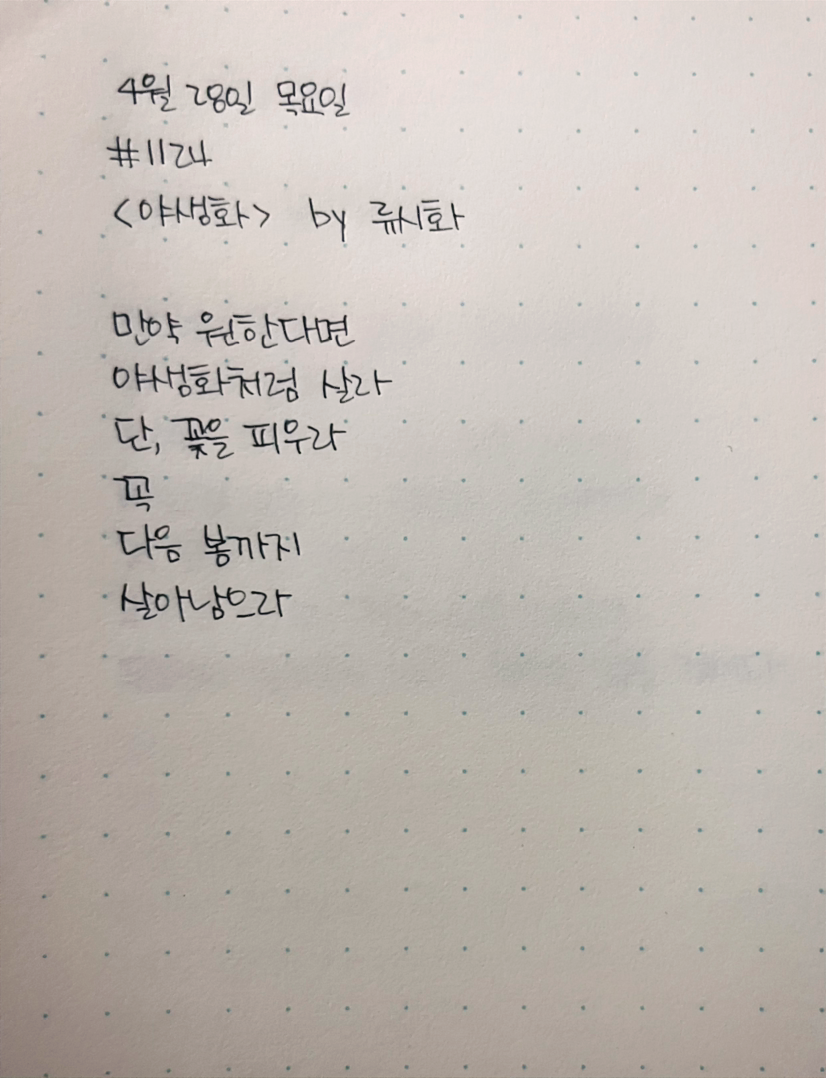 4월 28일 목요일
#1124
<야생화> by 류시화
만약 원한다면
야생화처럼 살라
단, 꽃을 피우라
꼭
다음 봄까지
살아남으라